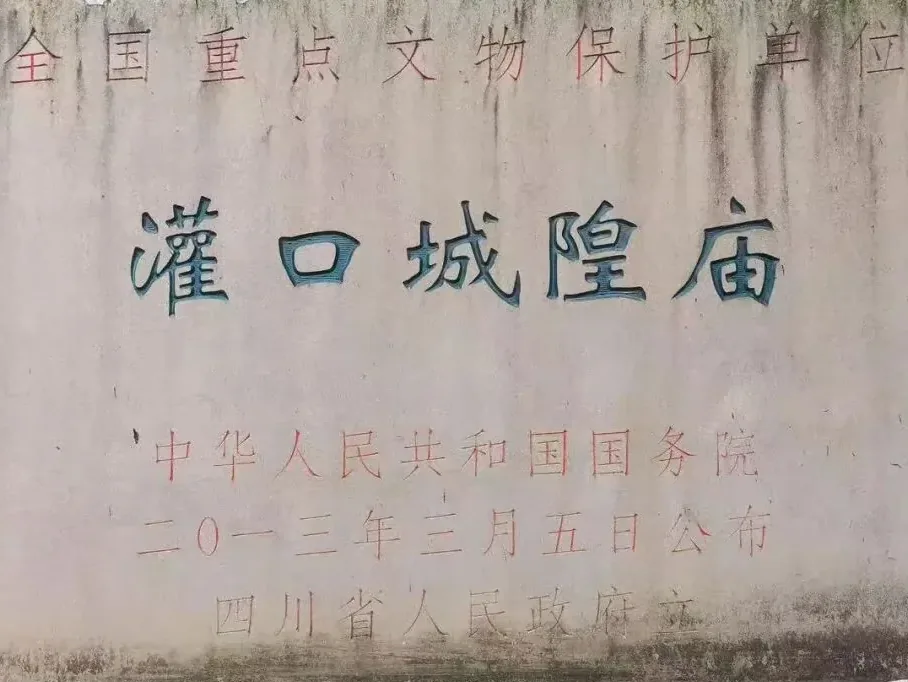 全国重点文物保护单位
灌口城隍庙
中华人民共和国国务院
二0一三年三月五日公布
四川省人民政府立